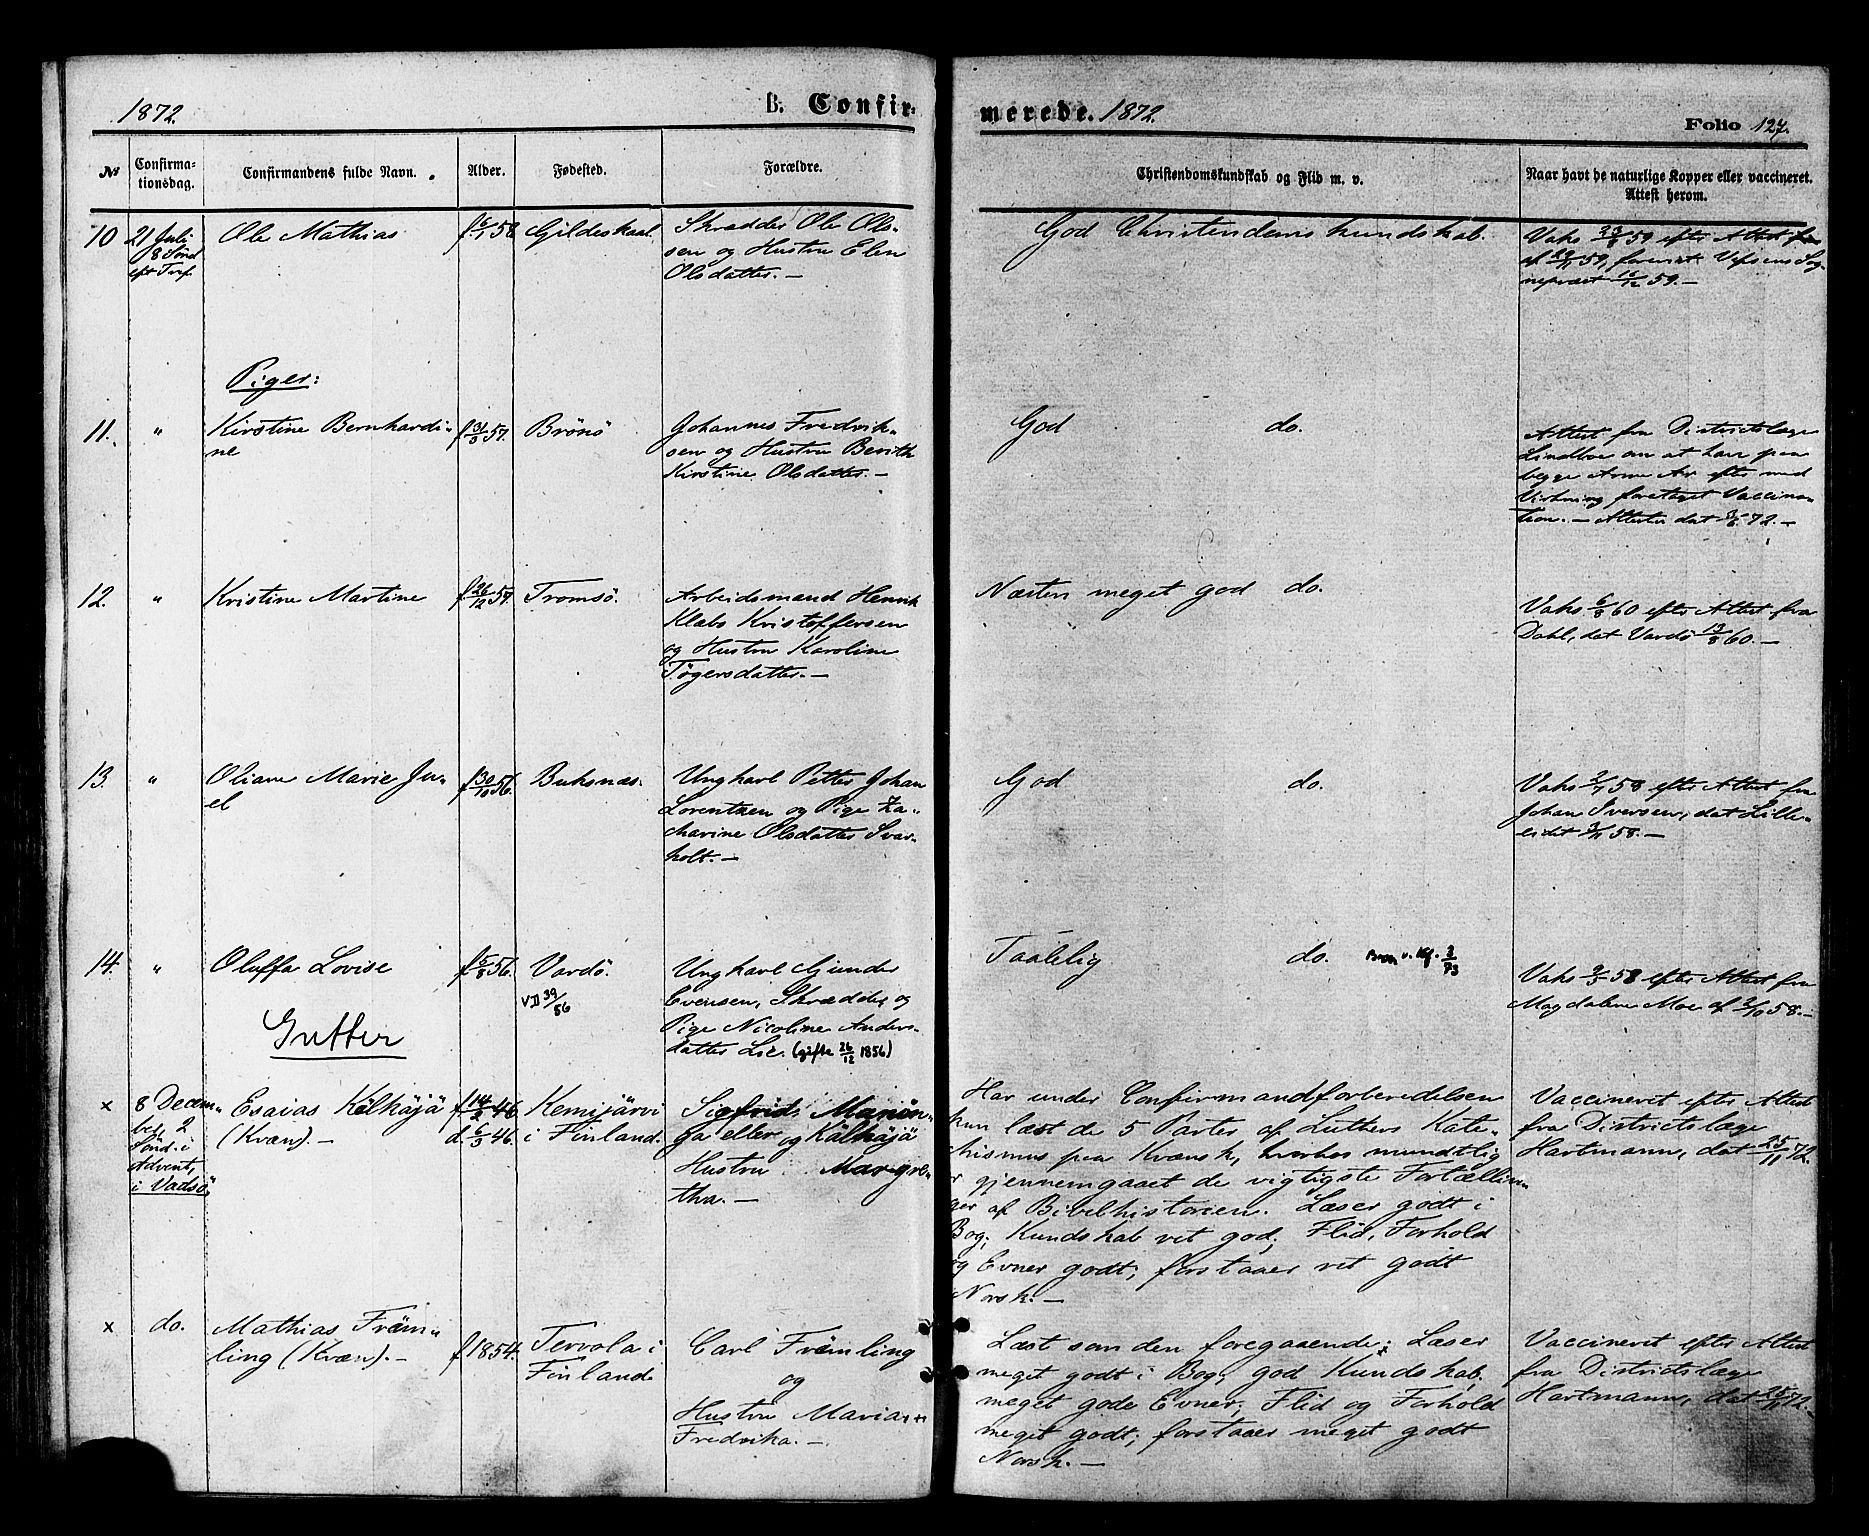 1872.
B. Confir-
merede. 1872.
Folio 127.
No
Confirma-
tionsdag.
Confirmandens fulde Navn.
Alder.
Fødested.
Forældre.
Christendomskundskab og Flid m. v.
Naar havt de naturlige Kopper eller vaccineret.
Attest herom.
10
21 Juli
8 Sönd
eft Tref.
Ole Mathias
Gildeskaal.
Skrædder Ole Ol-
sen og Hustru Elen
Olsdatter. —
God Christendomskundskab.
Vaks 23/8 59 efter Attest fra
59, forevist Vefsens Sog-
nepræst 16/12 59. —
Piger:
11.
"
Kirstine Bernhardi-
ne
f 31/3 57.
Brönö
Johannes Fredrik-
sen og Hustru Berith
Kirstine Olsdatter. —
God do.
Attest fra Districtslæge
Lindboe om at have paa
begge Arme Ar efter med
Virkning foretaget Vaccina-
tion. — Attesten dat 72. —
12.
"
Kristine Martine
f. 26/12 57.
Tromsö.
Arbeidsmand Henrik
Klabs Kristoffersen
og Hustru Karoline
Tögersdatter. —
Næsten meget god do.
Vaks 6/8 60 efter Attest fra
Dahl, dat Vardö 13/8 60. —
13.
"
Oliane Marie Ju-
el
f 30/10 56.
Buksnæs.
Ungkarl Petter Johan
Lorentzen og Pige Za-
charine Olsdatter Svar-
holt. —
God do.
Vaks 58 efter Attest fra
Johan Iversen, dat Lille-
eidet 58. —
14.
"
Oluffa Lovise
f 5/8 56.
Vardö.
VD 39/56
Ungkarl Gunder
Evensen, Skrædder, og
Pige Nicoline Anders-
datter Lie. (gifte 26/12 1856)
Taalelig do.
Vaks 58 efter Attest fra
Magdalene Moe af 58. —
Gutter
×
8 Decem-
ber, 2
Sönd. i
Advent,
i Vadsö.
Esaias Kälkäjä
(Kvæn). —
f 14/2 46
d. 6/3 46.
Kemijärvi
i Finland.
Sigfrids
ga eller og Kälkäjä
Hustru Margre-
tha. —
Har under Confirmandforberedelsen
kun læst de 5 Parter af Luthers Kate-
chismus paa Kvænsk, hvorhos mundtlig
er gjennemgaaet de vigtigste Fortællin-
ger af Bibelhistorien. Læser godt i
Bog; Kundskab vet god; Flid, Forhold
og Evner godt; forstaaer vet godt
Norsk. —
Vaccineret efter Attest
fra Districtslæge
Hartmann, dat 25/11 72.
×
do.
Mathias Främ-
ling (Kvæn). —
f 1854.
Tervola i
Finland.
Carl Främling
og
Hustru Maria
Fredrika. —
Læst som den foregaaende; Læser
meget godt i Bog; god Kundskab,
meget gode Evner; Flid og Forhold
meget godt; forstaaer meget godt
Norsk. —
Vaccineret efter Attest
fra Districtslæge
Hartmann, dat 25/11 72. —